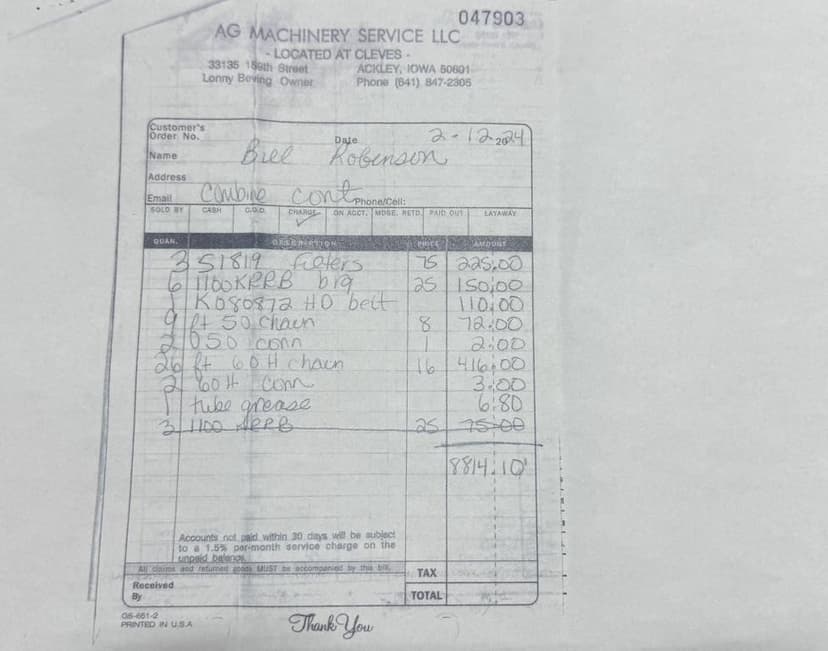 047903
AG MACHINERY SERVICE LLC
- LOCATED AT CLEVES -
33135 159th Street ACKLEY, IOWA 50601
Lonny Beving Owner Phone (641) 847-2305
Customer's
Order No. Date 2-12 2024
Name Bill Robinson
Address
Email Combine cont Phone/Cell:
SOLD BY CASH C.O.D. CHARGE ✓ ON ACCT. MDSE. RETD. PAID OUT LAYAWAY
QUAN. DESCRIPTION PRICE AMOUNT
3 51819 75 225.00
6 1100KRRB brg 25 150.00
1 K080872 HD belt 110.00
9 ft 50 chain 8 72.00
2 050 conn 1 2.00
26 ft 60H chain 16 416.00
2 60H conn 3.00
1 tube grease 6.80
3 1100 KRRB 25 75.00
8814.10
Accounts not paid within 30 days will be subject
to a 1.5% per-month service charge on the
unpaid balance.
All claims and returned goods MUST be accompanied by this bill. TAX
Received
By TOTAL
GS-651-2
PRINTED IN U.S.A. Thank You